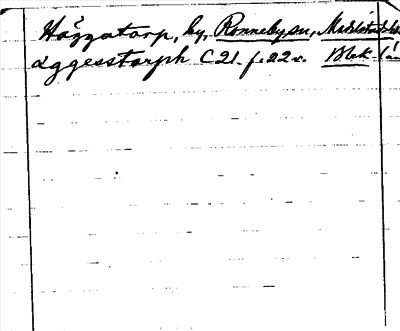 Häggatorp, by, Ronneby sn, Medelstads
Aggesstorph C 21 f. 22 v. Blek. län